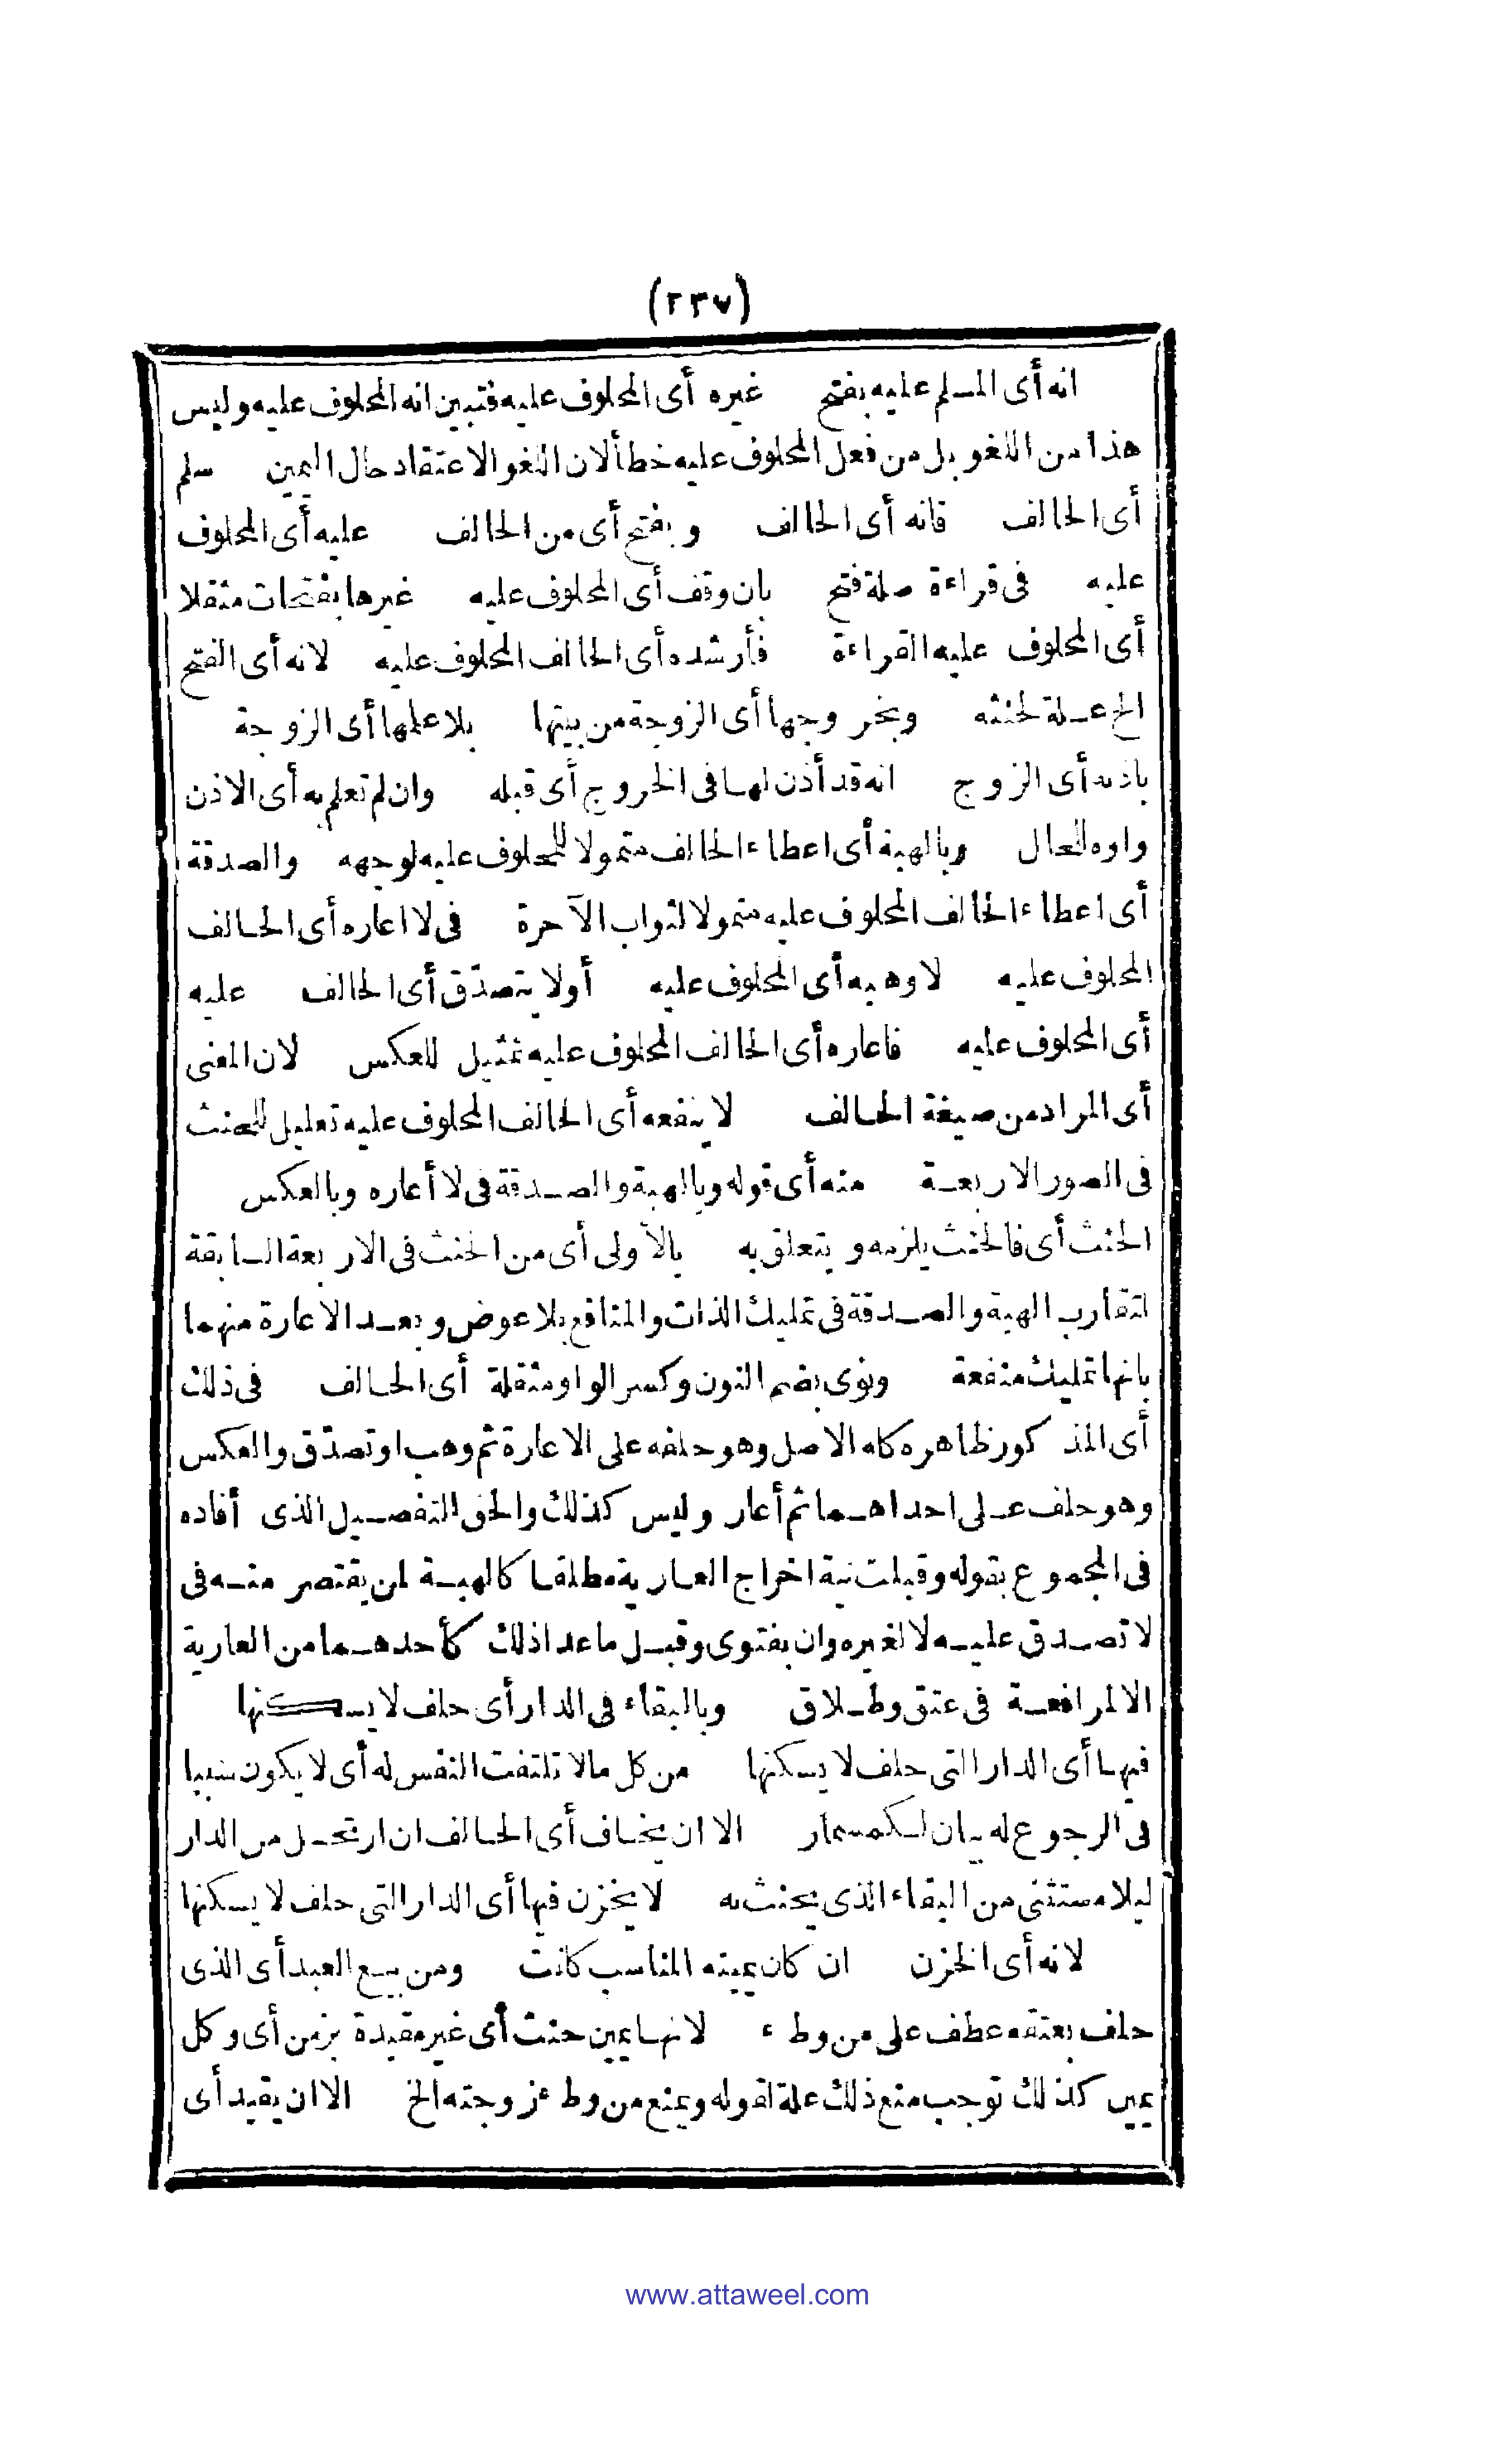 (٢٣٧)
انه أى المسلم عليه بفتح غيره أى المحلوف عليه فتبين انه المحلوف عليه وليس
هذا من اللغو بل من فعل المحلوف عليه خطأ لان اللغو الاعتقاد حال اليمين سلم
أى الحالف فانه أى الحالف وبفتح أى من الحالف عليه أى المحلوف
عليه فى قراءة صلة فتح بان وقف أى المحلوف عليه غيرها بفتحات مثقلا
أى المحلوف عليه القراءة فأرشده أى الحالف المحلوف عليه لانه أى الفتح
الخ عـلة لحنثه وبخروجها أى الزوجة من بيتها بلا علمها أى الزوجة
باذنه أى الزوج انه قد أذن لها فى الخروج أى قبله وان لم تعلم به أى الاذن
واوه للحال وبالهبة أى اعطاء الحالف متمولا للمحلوف عليه لوجهه والصدقة
أى اعطاء الحالف المحلوف عليه متمولا لثواب الآخرة فى لا اعاره أى الحالف
المحلوف عليه لا وهبه أى المحلوف عليه أو لا يتصدّق أى الحالف عليه
أى المحلوف عليه فاعاره أى الحالف المحلوف عليه تمثيل للعكس لان المعنى
أى المراد من صيغة الحالف لا ينفعه أى الحالف المحلوف عليه تعليل للحنث
فى الصور الاربعة منه أى قوله وبالهبة والصدقة فى لا أعاره وبالعكس
الحنث أى فالحنث يلزمه ويتعلق به بالأولى أى من الحنث فى الاربعة السابقة
لتقارب الهبة والصدقة فى تمليك الذات والمنافع بلا عوض وبعد الاعارة منهما
بانها تمليك منفعة ونوى بضم النون وكسر الواو مثقلة أى الحالف فى ذلك
أى المذكور ظاهره كله الاصل وهو حلفه على الاعارة ثم وهب او تصدّق والعكس
وهو حلف عـلى احداهـما ثم أعار وليس كذلك والحق التفصيل الذى أفاده
فى المجموع بقوله وقبلت نية اخراج العارية مطلقا كالهبة لمن يقتصر منه فى
لا تصدق عليه لا لغيره وان بفتوى وقبل ما عدا ذلك كأحدهـما من العارية
الا لمرافعة فى عتق وطلاق وبالبقاء فى الدار أى حلف لا يسكنها
فيها أى الدار التى حلف لا يسكنها من كل مالا تلتفت النفس له أى لا يكون سببا
فى الرجوع له بيان لكمسمار الا ان يخاف أى الحالف ان ارتحل من الدار
ليلا مستثنى من البقاء الذى يحنث به لا يخزن فيها أى الدار التى حلف لا يسكنها
لانه أى الخزن ان كان يمينه المناسب كانت ومن بيع العبد أى الذى
حلف بعتقه عطف على من وطء لانها يمين حنث أى غير مقيدة بزمن أى وكل
يمين كذلك توجب منع ذلك علة لقوله ويمنع من وطء زوجته الخ الا ان يقيد أى
www.attaweel.com